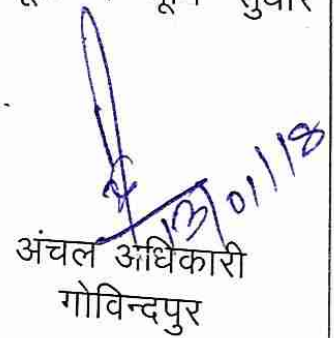 सुधार
13/01/18
अंचल अधिकारी
गोविन्दपुर